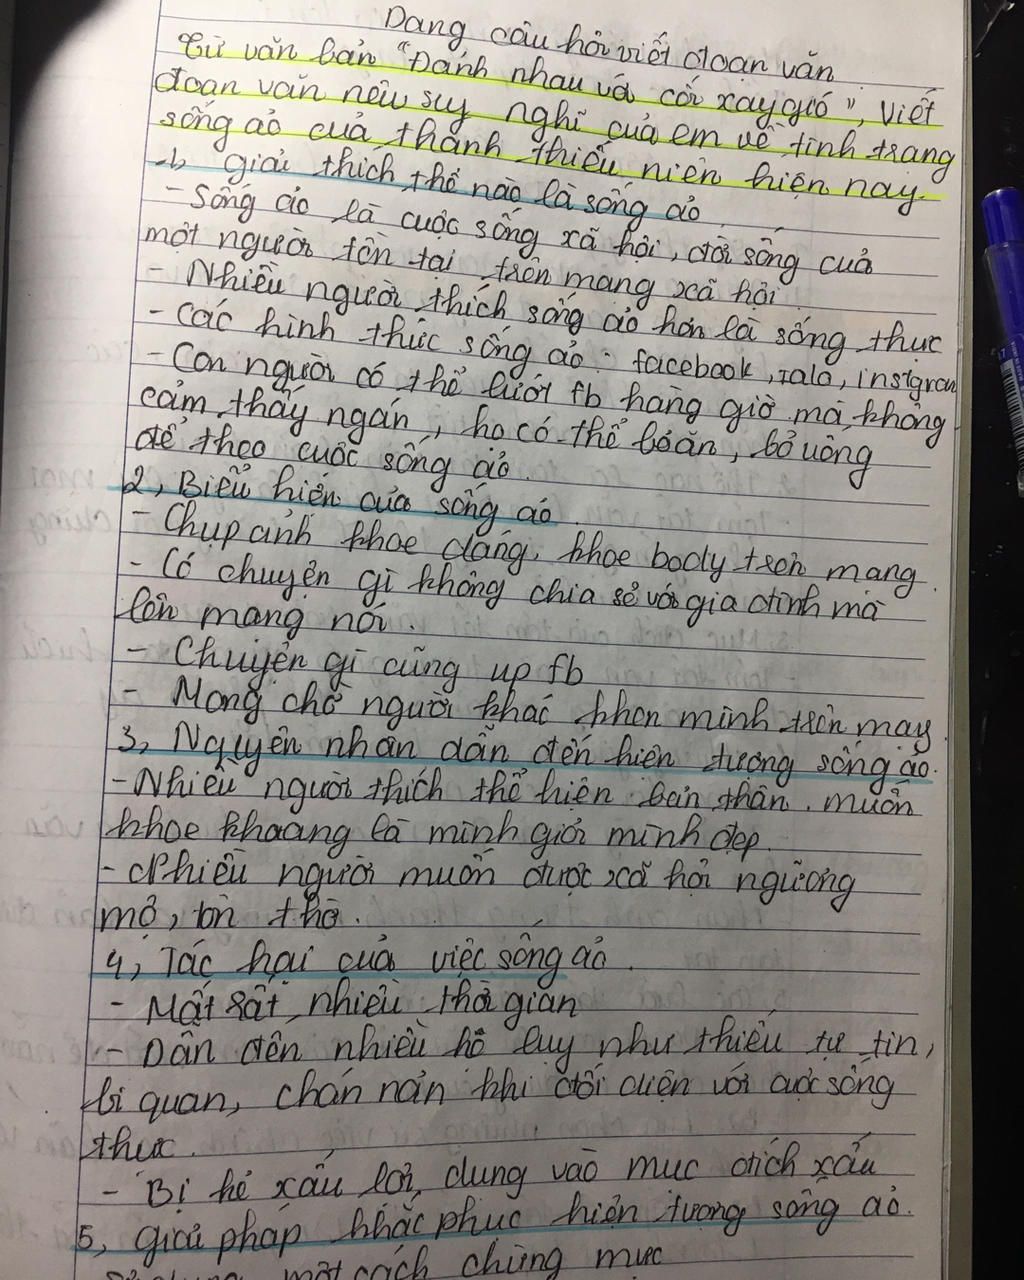 Dạng câu hỏi viết đoạn văn
Từ văn bản "Đánh nhau với cối xay gió", Viết
đoạn văn nêu suy nghĩ của em về tình trạng
sống ảo của thanh thiếu niên hiện nay
1, giải thích thế nào là sống ảo
- Sống ảo là cuộc sống xã hội, đời sống của
một người tồn tại trên mạng xã hội
- Nhiều người thích sống ảo hơn là sống thực
- Các hình thức sống ảo: facebook, zalo, instgram
- Con người có thể lướt fb hàng giờ mà không
cảm thấy ngán, họ có thể bỏ ăn, bỏ uống
để theo cuộc sống ảo.
2, Biểu hiện của sống ảo.
- Chụp ảnh khoe dáng, khoe body trên mạng.
- Có chuyện gì không chia sẻ với gia đình mà
lên mạng nói.
- Chuyện gì cũng up fb
- Mong chờ người khác khen mình trên mạg.
3, Nguyên nhân dẫn đến hiện tượng sống ảo.
- Nhiều người thích thể hiện bản thân. muốn
khoe khoang là mình giỏi mình đẹp.
- Nhiều người muốn được xã hội ngưỡng
mộ, tôn thờ.
4, Tác hại của việc sống ảo.
- Mất rất nhiều thời gian
- Dẫn đến nhiều hệ lụy như thiếu tự tin,
bi quan, chán nản khi đối diện với cuộc sống
thực.
- Bị kẻ xấu lợi dụng vào mục đích xấu
5, giải pháp khắc phục hiện tượng sống ảo.
một cách chừng mực